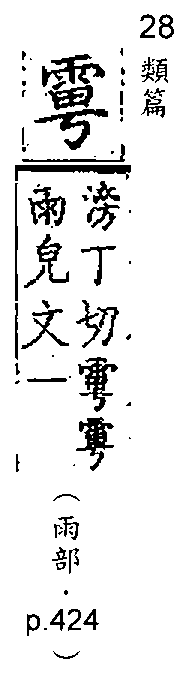 28
類篇
滂丁切
雨皃文一
(雨部．
p.424
)